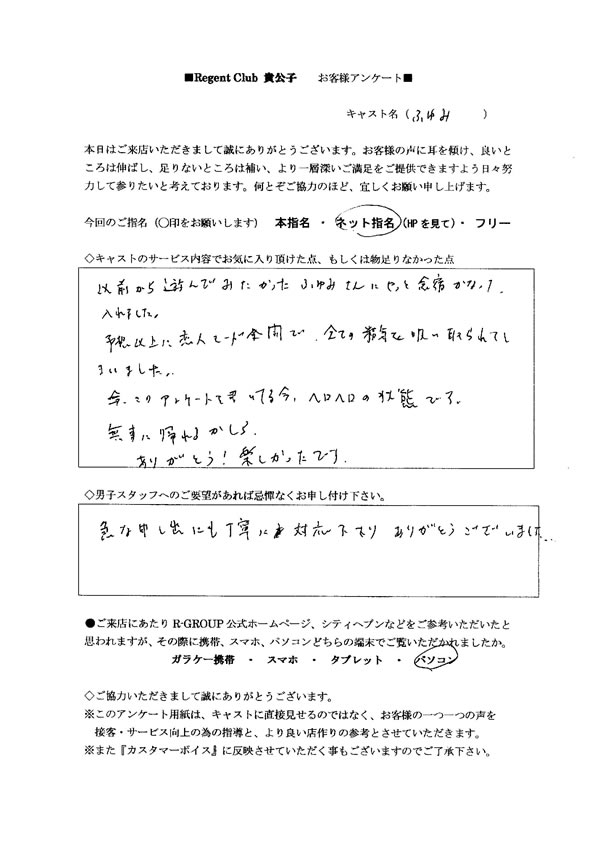 ■Regent Club 貴公子　お客様アンケート■
キャスト名（ふゆみ　）
本日はご来店いただきまして誠にありがとうございます。お客様の声に耳を傾け、良いと
ころは伸ばし、足りないところは補い、より一層深いご満足をご提供できますよう日々努
力して参りたいと考えております。何とぞご協力のほど、宜しくお願い申し上げます。
今回のご指名（〇印をお願いします）　本指名 ・ ネット指名(HPを見て)・ フリー
◇キャストのサービス内容でお気に入り頂けた点、もしくは物足りなかった点
以前から遊んでみたかったふゆみさんにやっと念願かなって
入れました。
予想以上に恋人モード全開で、全ての精気を吸い取られてし
まいました。
今、このアンケートを書いてる今、ヘロヘロの状態です。
無事に帰れるかしら。
ありがとう！楽しかったです。
◇男子スタッフへのご要望があれば忌憚なくお申し付け下さい。
急な申し出にも丁寧に対応下さり ありがとうございました
●ご来店にあたり R-GROUP 公式ホームページ、シティヘブンなどをご参考いただいたと
思われますが、その際に携帯、スマホ、パソコンどちらの端末でご覧いただかれましたか。
ガラケー携帯 ・ スマホ ・ タブレット ・ パソコン
◇ご協力いただきまして誠にありがとうございます。
※このアンケート用紙は、キャストに直接見せるのではなく、お客様の一つ一つの声を
接客・サービス向上の為の指導と、より良い店作りの参考とさせていただきます。
※また『カスタマーボイス』に反映させていただく事もございますのでご了承下さい。